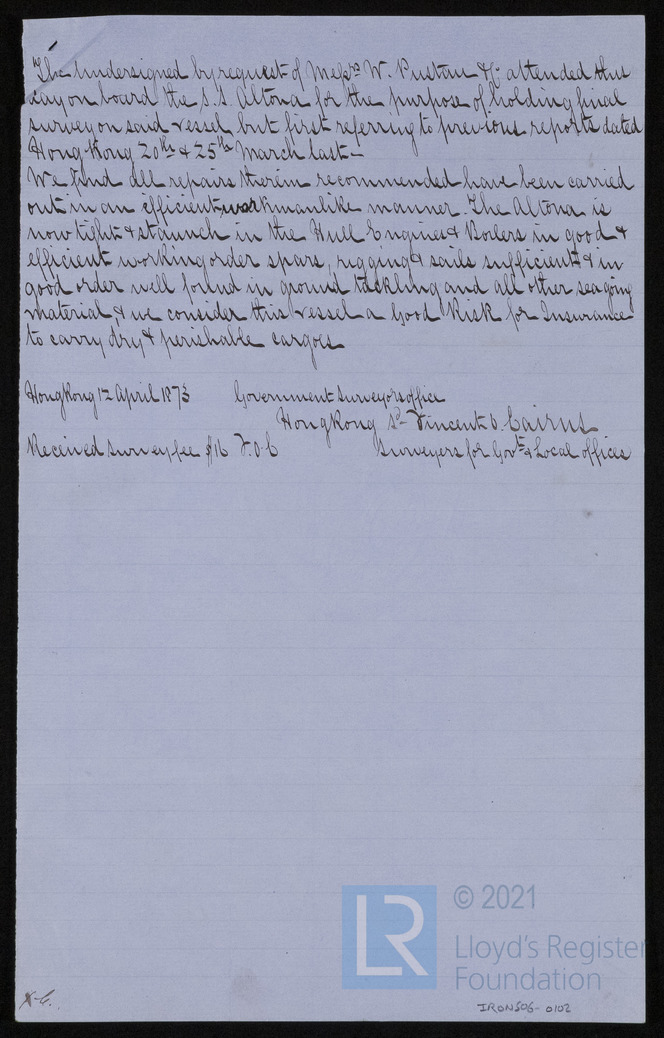 The Undersigned by request of Messrs W. Pustau & Co attended this
day on board the S.S. Altona for the purpose of holding final
survey on said vessel but first referring to previous reports dated
Hong Kong 20th & 25th March last –
We find all repairs therein recommended have been carried
out in an efficient workmanlike manner. The Altona is
now tight & staunch in the Hull Engines & Boilers in good &
efficient working order spars, rigging & sails sufficient & in
good order well found in ground tackling and all other sea going
material, & we consider this vessel a Good Risk for Insurance
to carry dry & perishable cargoes
Hong Kong 12 April 1873 Government Surveyors office
Hong Kong Sd- Vincent D. Cairns
Received Survey fee $16 V.D.C Surveyors for Govt & Local offices
© 2021
LR
Lloyd's Register
Foundation
IRON506-0102